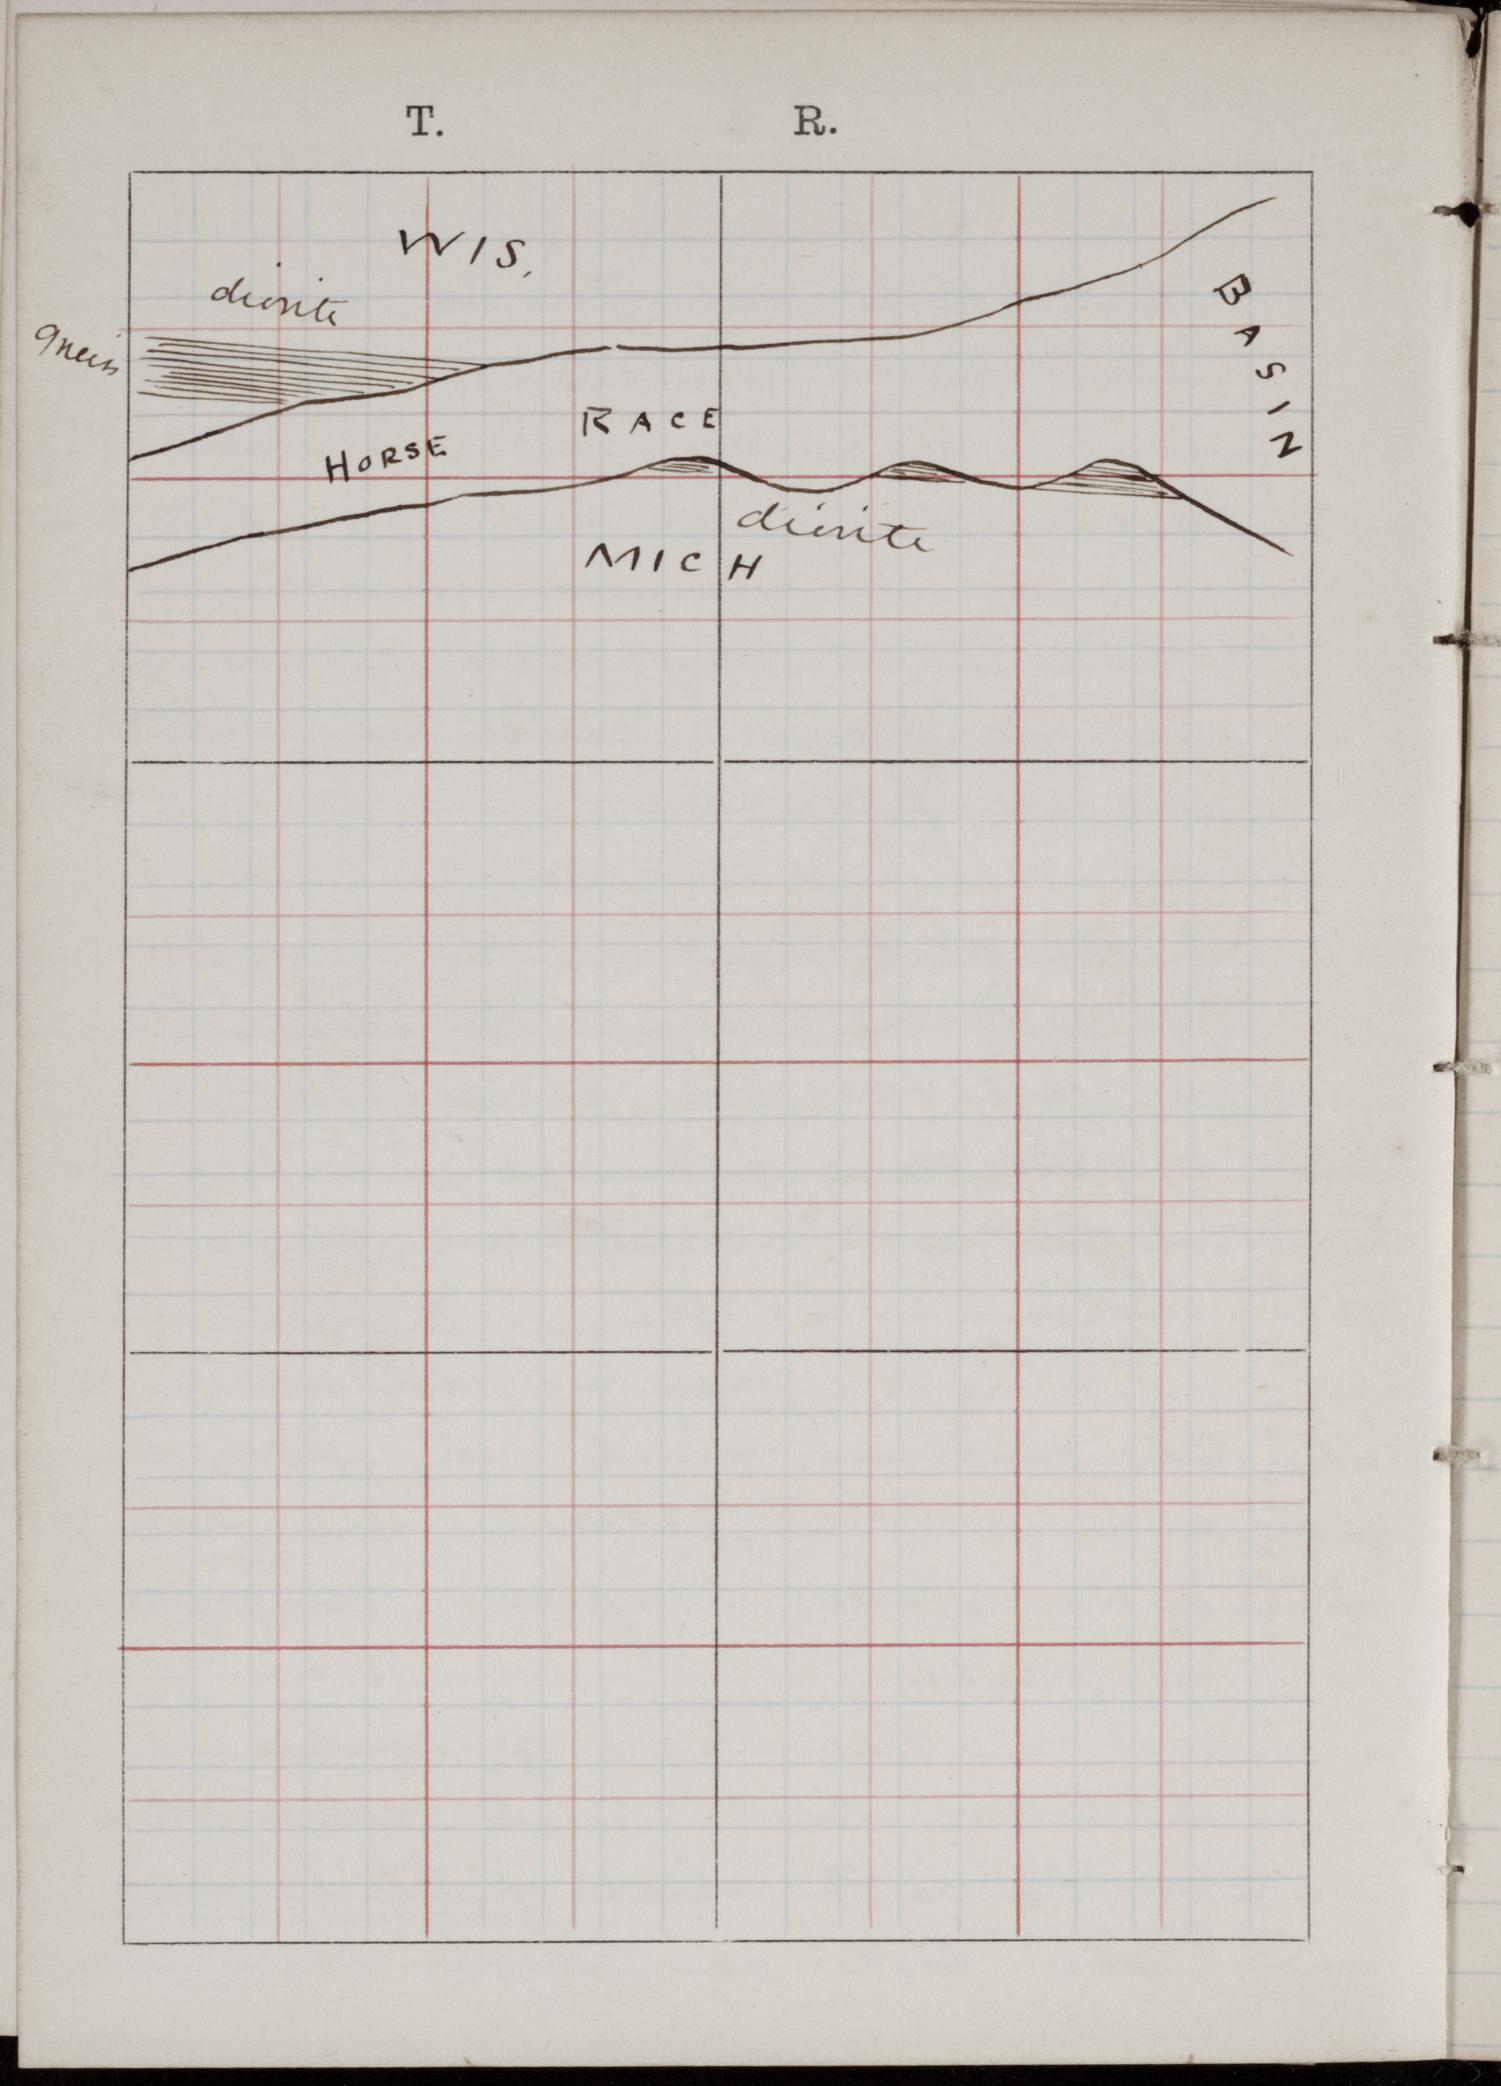 T. R.
WIS.
diorite
gneiss
BASIN
RACE
HORSE
diorite
MICH